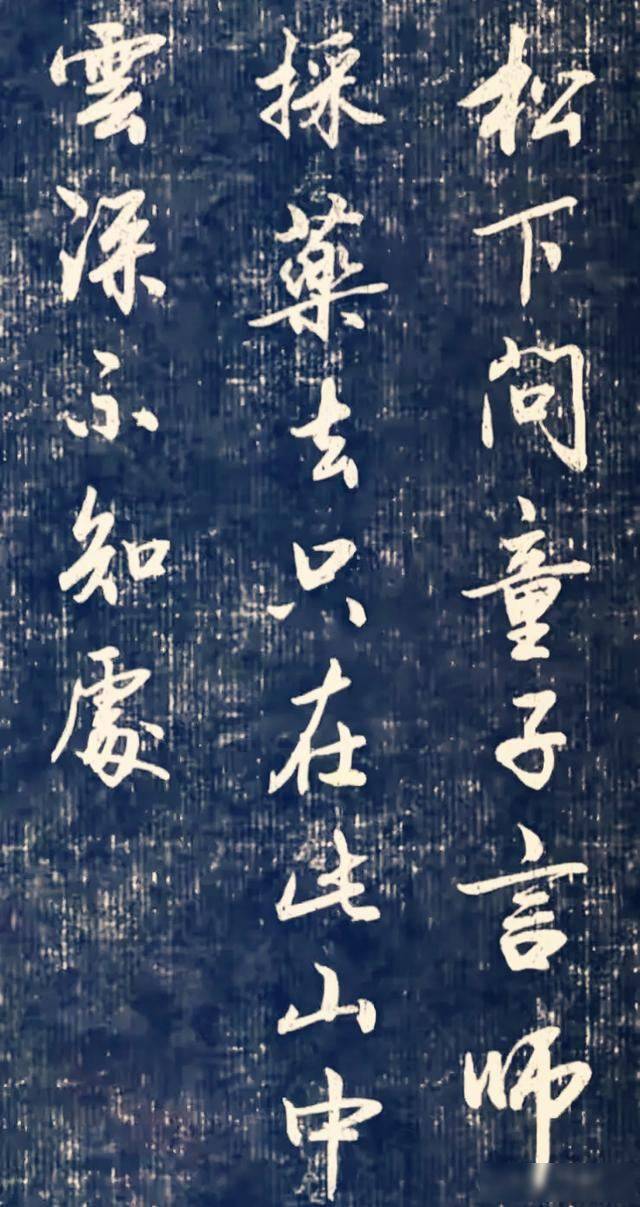 松下问童子言师
採藥去只在此山中
雲深不知處